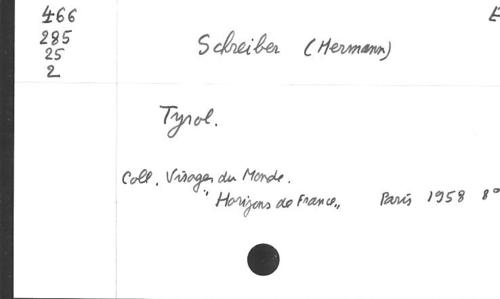 466
285
25
2
E
Schreiber (Hermann)
Tyrol.
Coll. Visages du Monde.
"Horizons de France" Paris 1958 8°